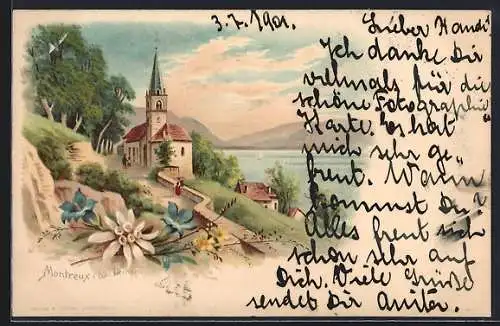 3.7.1901.
Lieber Handi!
Ich danke Dir
vielmals für die
schöne Fotographie
Karte. Es hat
mich sehr ge
freut. Wann
kommst Du?
Alles freut sich
schon sehr auf
Dich. Viele Grüße
sendet Dir Anita.
Montreux